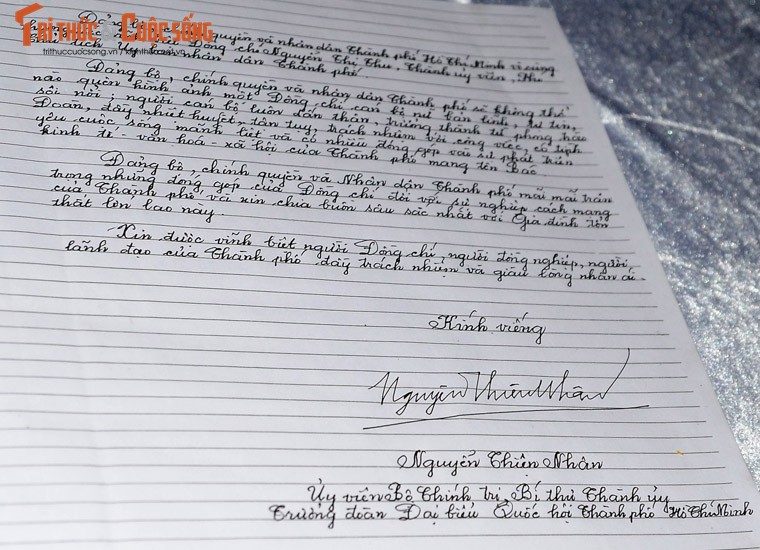 TRI THỨC & CUỘC SỐNG
Đảng bộ, chính quyền và nhân dân Thành phố Hồ Chí Minh vô cùng
Đồng chí Nguyễn Thị Thu, Thành ủy viên, Phó
Chủ tịch Ủy ban nhân dân Thành phố
Đảng bộ, chính quyền và nhân dân Thành phố sẽ không thể
nào quên hình ảnh một Đồng chí cán bộ nữ bản lĩnh, tự tin,
sôi nổi, người cán bộ luôn dấn thân, trưởng thành từ phong trào
Đoàn, đầy nhiệt huyết, tận tụy, trách nhiệm với công việc, có tình
yêu cuộc sống mãnh liệt và có nhiều đóng góp vào sự phát triển
kinh tế - văn hoá - xã hội của Thành phố mang tên Bác
Đảng bộ, chính quyền và Nhân dân Thành phố mãi mãi trân
trọng những đóng góp của Đồng chí đối với sự nghiệp cách mạng
của Thành phố và xin chia buồn sâu sắc nhất với Gia đình tổn
thất lớn lao này.
Xin được vĩnh biệt người Đồng chí, người đồng nghiệp, người
lãnh đạo của Thành phố đầy trách nhiệm và giàu lòng nhân ái.
Kính viếng
Nguyễn Thiện Nhân
Nguyễn Thiện Nhân
Ủy viên Bộ Chính trị, Bí thư Thành ủy
Trưởng đoàn Đại biểu Quốc hội Thành phố Hồ Chí Minh